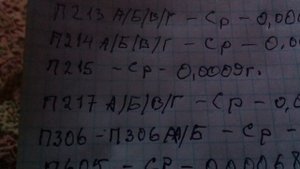 П213 А/Б/В/Г - Ср - 0,00
П214 А/Б/В/Г - Ср - 0,0
П215 - Ср - 0,0009г.
П217 А/Б/В/Г - Ср - 0,
П306 - П306А/Б - Ср -
П605 - Ср - 0,00068